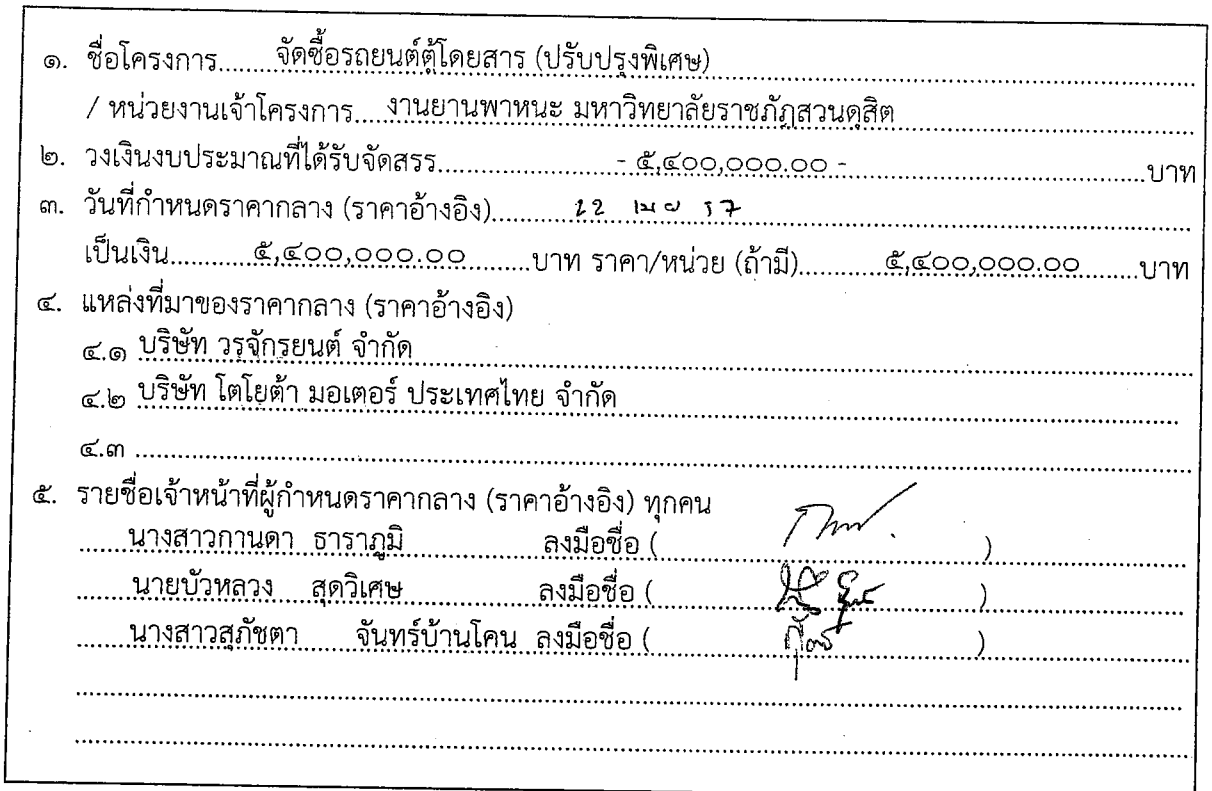 ๑. ชื่อโครงการ.......จัดซื้อรถยนต์ตู้โดยสาร (ปรับปรุงพิเศษ)
/ หน่วยงานเจ้าโครงการ....งานยานพาหนะ มหาวิทยาลัยราชภัฏสวนดุสิต
๒. วงเงินงบประมาณที่ได้รับจัดสรร.......- ๕,๔๐๐,๐๐๐.๐๐ -.......บาท
๓. วันที่กำหนดราคากลาง (ราคาอ้างอิง).......22 เมย 57
เป็นเงิน.......๕,๔๐๐,๐๐๐.๐๐.......บาท ราคา/หน่วย (ถ้ามี).......๕,๔๐๐,๐๐๐.๐๐.......บาท
๔. แหล่งที่มาของราคากลาง (ราคาอ้างอิง)
๔.๑ บริษัท วรจักรยนต์ จำกัด
๔.๒ บริษัท โตโยต้า มอเตอร์ ประเทศไทย จำกัด
๔.๓
๕. รายชื่อเจ้าหน้าที่ผู้กำหนดราคากลาง (ราคาอ้างอิง) ทุกคน
นางสาวกานดา ธาราภูมิ ลงมือชื่อ ( )
นายบัวหลวง สุดวิเศษ ลงมือชื่อ ( )
นางสาวสุภัชตา จันทร์บ้านโคน ลงมือชื่อ ( )